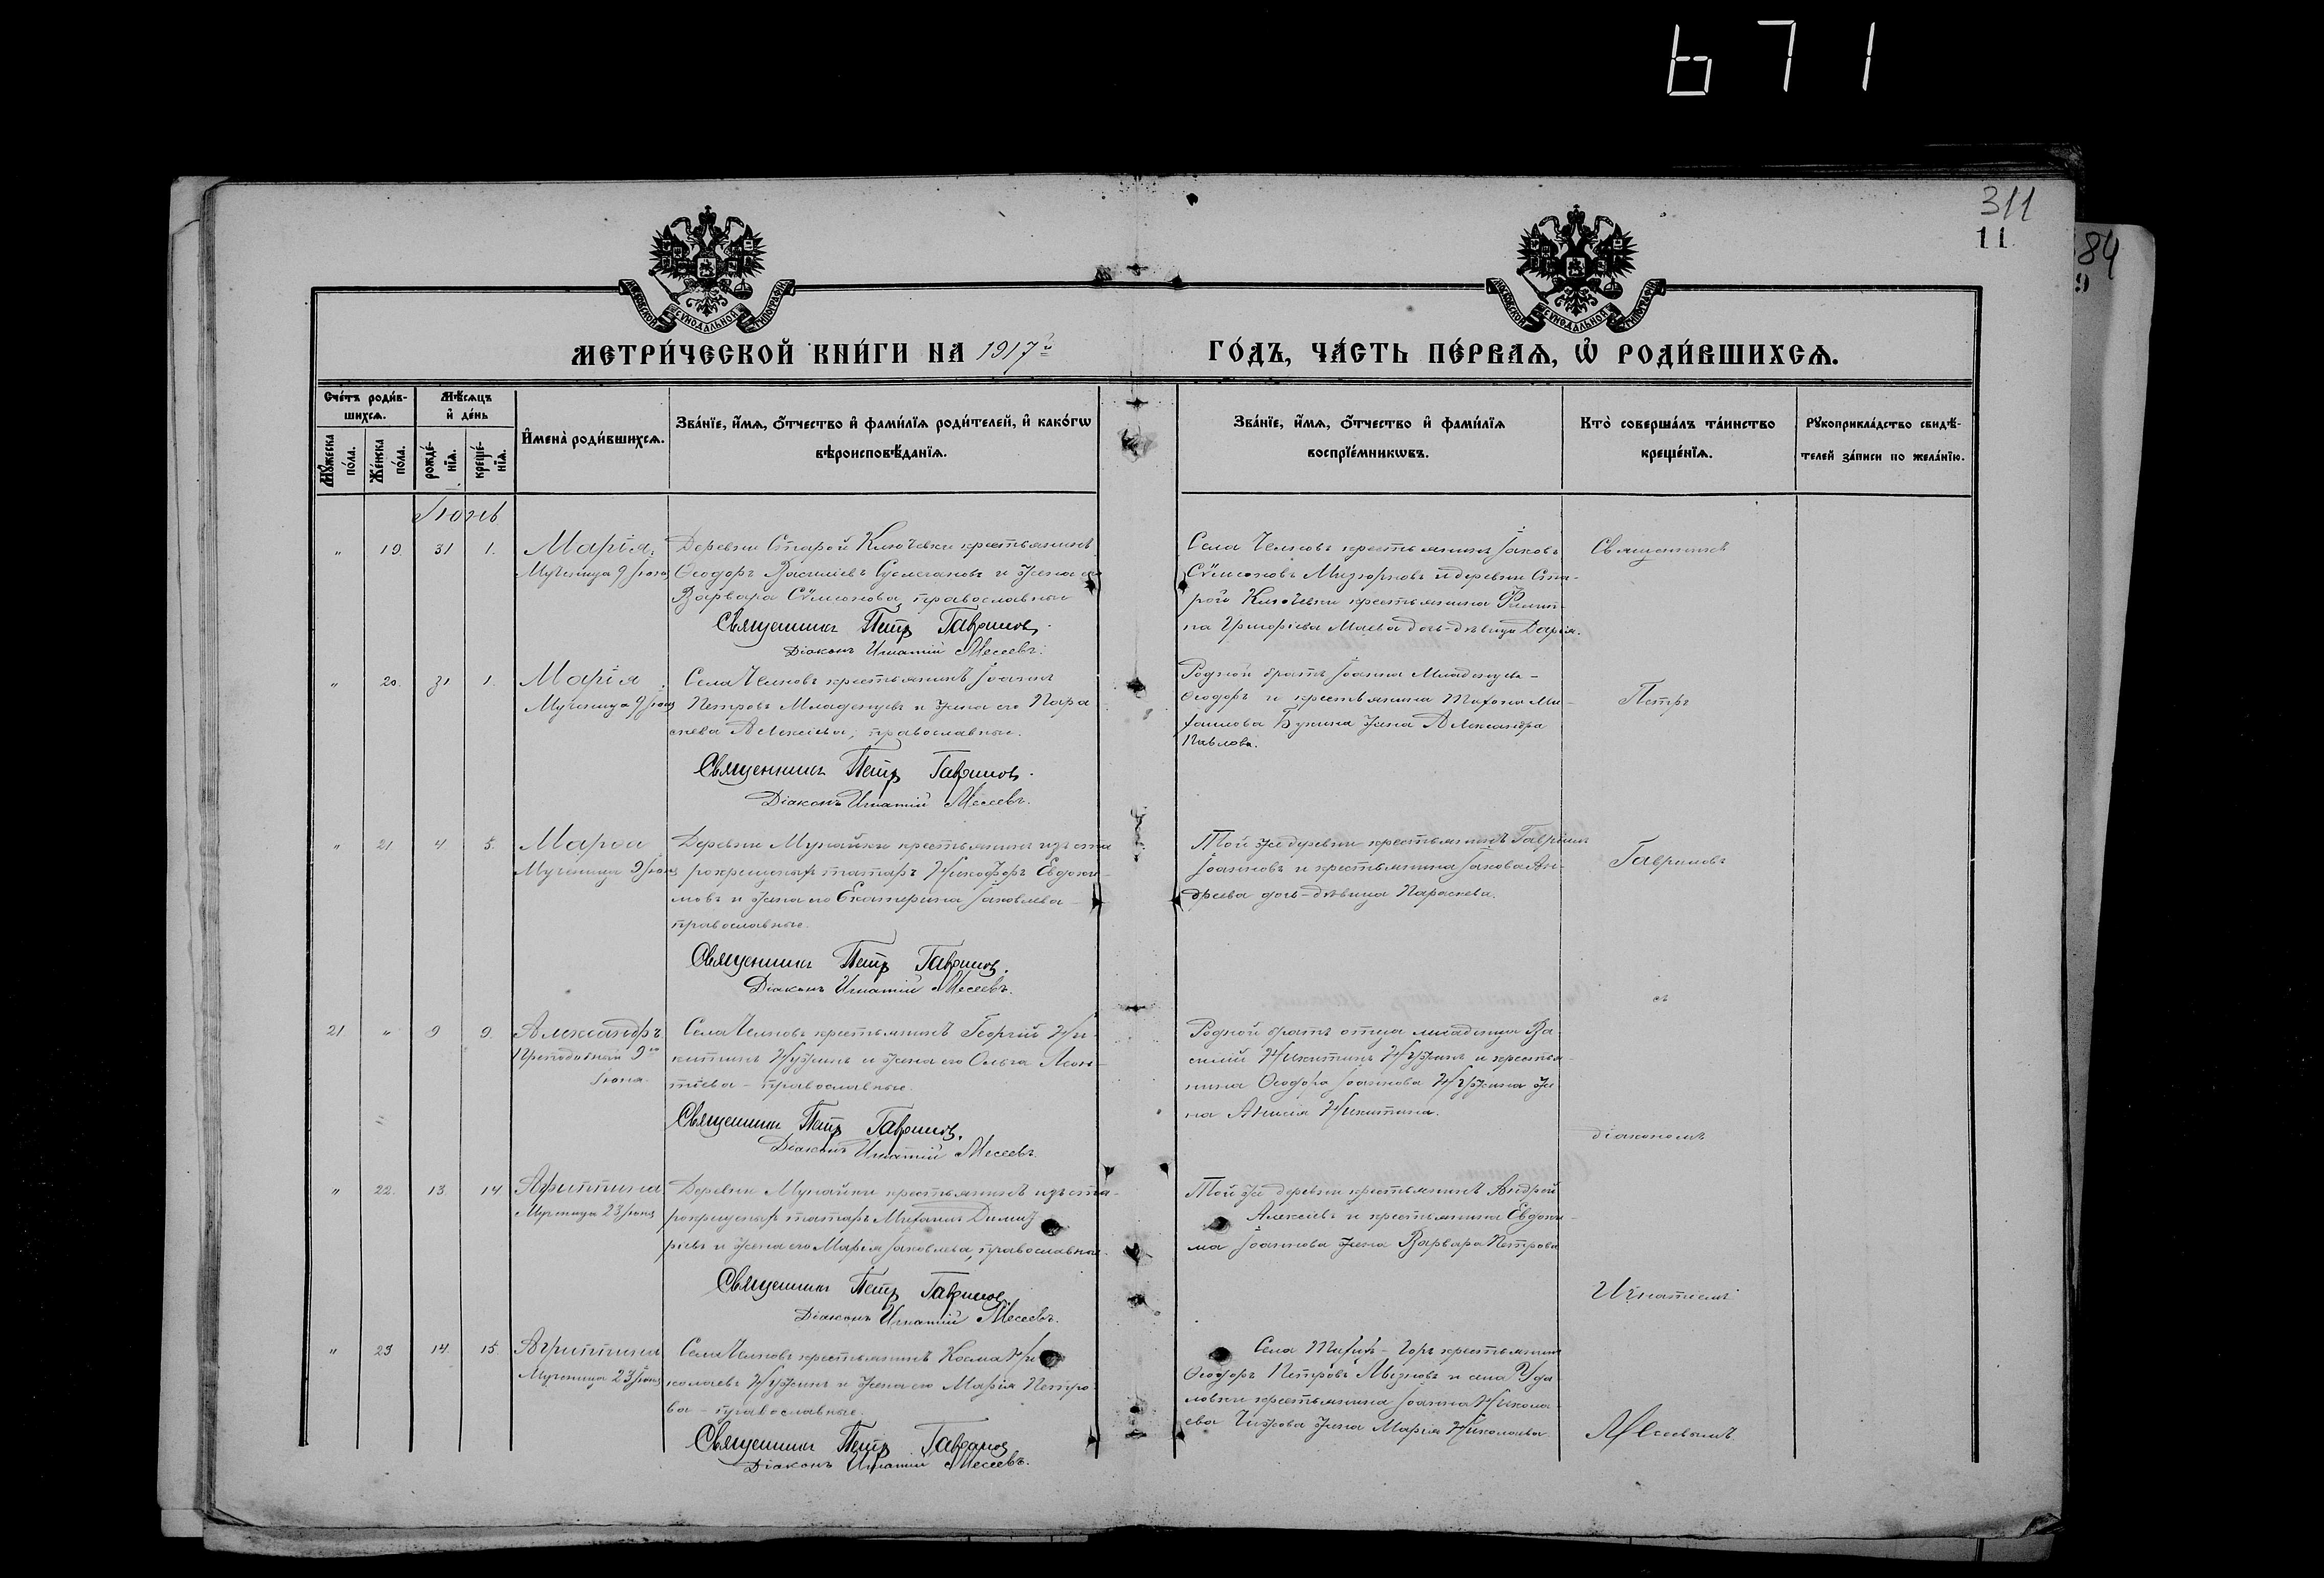 671
311
11
84
9
МОСКОВСКОЙ СѴНОДАЛЬНОЙ ТИПОГРАФІИ
МОСКОВСКОЙ СѴНОДАЛЬНОЙ ТИПОГРАФІИ
МЕТРИ́ЧЕСКОЙ КНИ́ГИ НА 1917 й
ГО́ДЪ, ЧА́СТЬ ПЕ́РВАЯ, Ѡ҆ РОДИ́ВШИХСЯ.
Сче́тъ роди́в-
шихся.
Мѣ́сяцъ
и҆ де́нь
Мꙋ́жеска по́ла.
Же́нска по́ла.
рожде́-нїя.
креще́-нїя.
И҆мена̀ роди́вшихся.
Зва́нїе, и҆́мя, о҆́тчество и҆ фами́лїя роди́телей, и҆ како́гѡ
вѣроисповѣ́данїя.
Зва́нїе, и҆́мя, о҆́тчество и҆ фами́лїя
воспрїе́мникѡвъ.
Кто̀ соверша́лъ та́инство
креще́нїя.
Рꙋкоприкла́дство свидѣ́-
телей за́писи по жела́нїю.
Іюнь
" 19. 31 1. Марія.
Мученица 9 Іюня
Деревни Старой Ключевки крестьянинъ
Ѳеодоръ Василіевъ и жена его
Варвара Сѵмеонова, православные
Священникъ Петръ Гавриловъ.
Діаконъ Игнатій Месеевъ.
Села Челновъ крестьянинъ Іаковъ
Сѵмеоновъ и деревни Ста-
рой Ключевки крестьянина Филип-
па Григоріева Маева дочь-дѣвица Дарія.
Священникъ
" 20. 31 1. Марія.
Мученица 9 Іюня
Села Челновъ крестьянинъ Іоаннъ
Петровъ Младенцевъ и жена его Пара
скева Алексіева, православные.
Священникъ Петръ Гавриловъ.
Діаконъ Игнатій Месеевъ.
Родной братъ Іоанна Младенцева -
Ѳеодоръ и крестьянина Тихона Ми-
хаилова Букина жена Александра
Павлова.
Петръ
" 21. 4 5. Марѳа
Мученица 9 Іюня
Деревни Мунайки крестьянинъ изъ ста
рокрещеныхъ татаръ Никифоръ Евдоки-
мовъ и жена его Екатерина Іаковлева -
православные.
Священникъ Петръ Гавриловъ.
Діаконъ Игнатій Месеевъ.
Той же деревни крестьянинъ Гавріилъ
Іоанновъ и крестьянина Іакова Ан-
дреева дочь-дѣвица Параскева.
Гавриловъ
съ
21 " 9 9. Александръ
Преподобный 9го
Іюня.
Села Челновъ крестьянинъ Георгій Ни-
китинъ Нужинъ и жена его Ольга Леон-
тіева - православные.
Священникъ Петръ Гавриловъ.
Діаконъ Игнатій Месеевъ.
Родной братъ отца младенца Ва-
силій Никитинъ Нужинъ и крестья-
нина Ѳеодора Іоаннова Нужина же
на Анисія Никитина.
діакономъ
" 22. 13. 14. Агриппина
Мученица 23 Іюня
Деревни Мунайки крестьянинъ изъ ста-
рокрещеныхъ татаръ Михаилъ Димит
ріевъ и жена его Марія Іаковлева, православные.
Священникъ Петръ Гавриловъ.
Діаконъ Игнатій Месеевъ.
Той же деревни крестьянинъ Андрей
Алексіевъ и крестьянина Евдоки-
ма Іоаннова жена Варвара Петрова
Игнатіемъ
" 23 14. 15. Агриппина
Мученица 23 Іюня
Села Челновъ крестьянинъ Косма Ни
колаевъ Нужинъ и жена его Марія Петро-
ва - православные.
Священникъ Петръ Гавриловъ
Діаконъ Игнатій Месеевъ.
Села Тихихъ-Горъ крестьянинъ
Ѳеодоръ Петровъ и села
крестьянина Іоанна Никола
ева Чижова жена Марія Николаева
Месеевымъ.